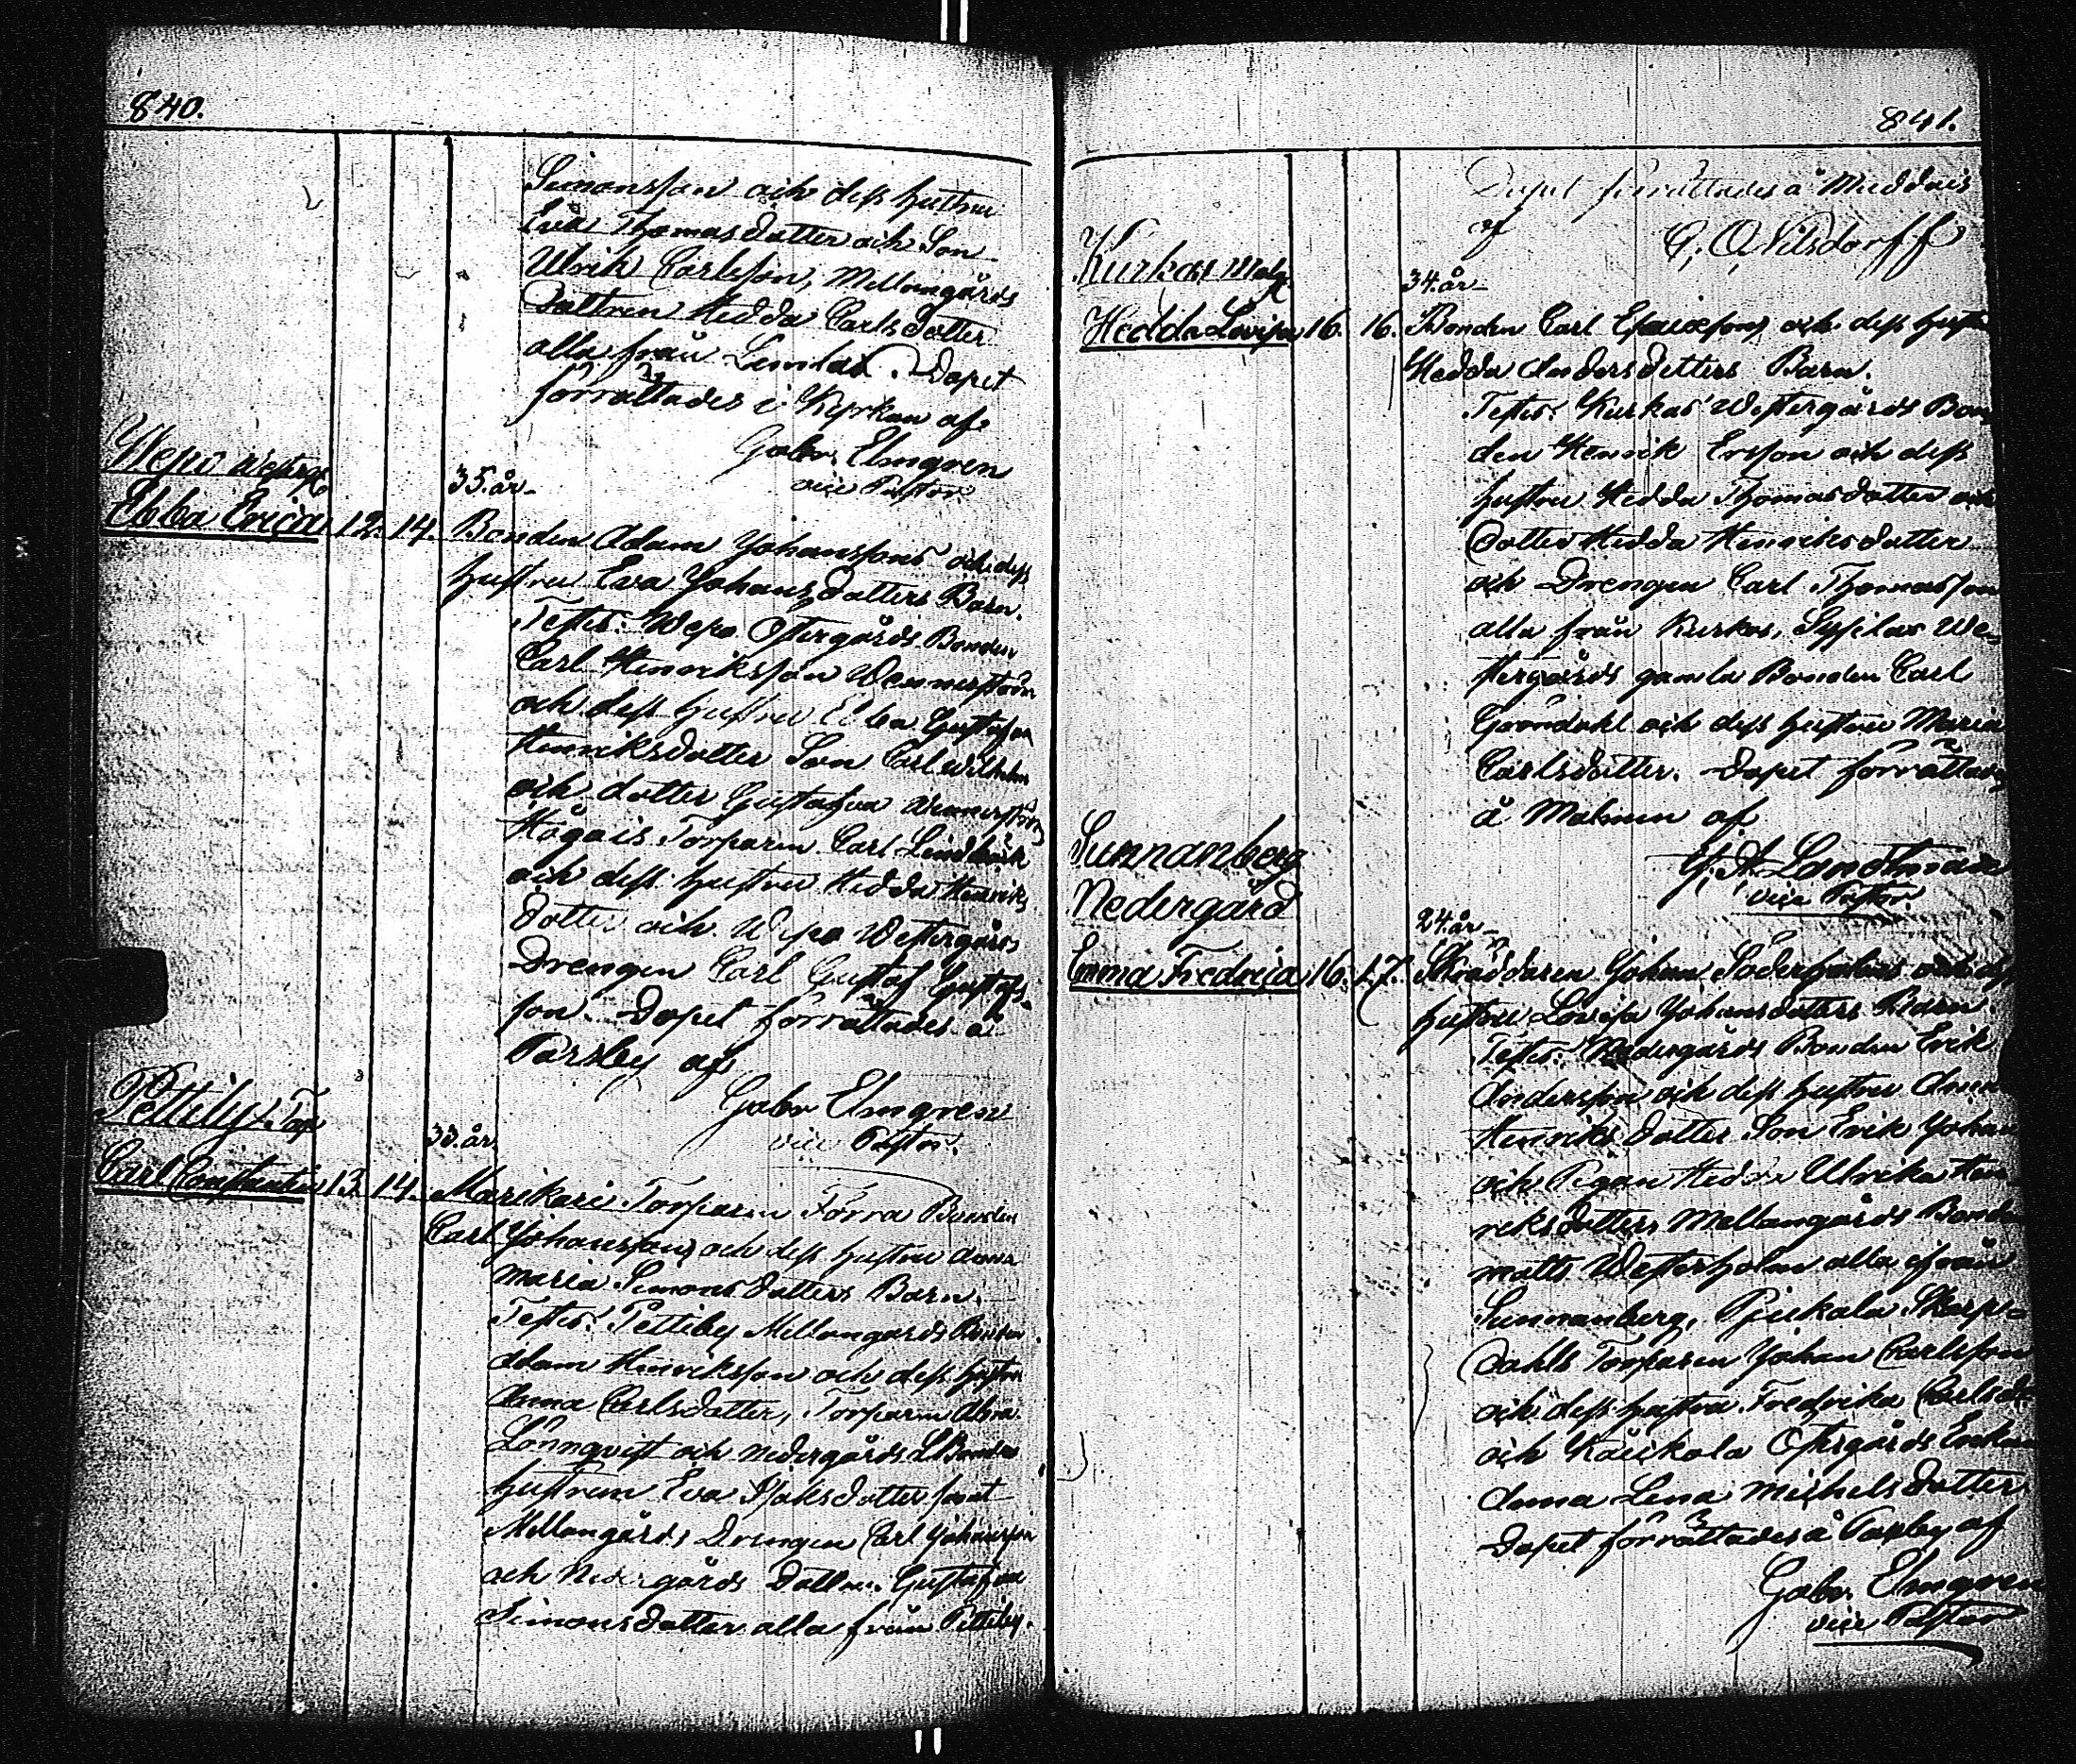 840.
Simonsson och dess hustru
Eva Thomasdotter och Son
Ulrik Carlsson, Mellangårds
Dottren Hedda Carlsdotter
alla från Lemlax. Dopet
förrättades i Kyrkan af
Gabr. Elmgren
vice Pastor.
Wepo Westerg
35. år
Ebba Erica. 12. 14. Bonden Adam Johanssons och dess
hustru Eva Johansdotters Barn.
Testes: Wepo Östergårds Bonden
Carl Henriksson Wennerström
och dess hustru Ebba Gustafva
Henriksdotter Son Carl Wilhelm
och dotter Gustafva Wennerström
Högais Torparen Carl Lindbäck
och dess hustru Hedda Henriks
dotter och Wepo Westergårds
Drengen Carl Gustaf Gustafs-
son. Dopet förrättades å
Parsby af
Gabr Elmgren
vice Pastor.
Pettiby Torp
33. år
Carl Constantin 13. 14. Marikari Torparen Förra Bonden
Carl Johanssons och dess hustru Anna
Maria Simonsdotters Barn.
Testes: Pettiby Mellangårds Bonden
Adam Henriksson och dess hustru
Anna Carlsdotter, Torparen Abra.
Lönnqvist och Nedergårds Bonde
hustrun Eva Isaksdotter samt
Mellangårds Drengen Carl Johansson
och Nedergårds Dottren Gustafva
Simonsdotter alla från Pettiby.
841.
Dopet förrättades å Muddais
af C. O. Nilsdorff
Kurkas Malg
34. år
Hedda Lovisa 16. 16. Bonden Carl Esaiessons och dess hustru
Hedda Andersdotters Barn.
Testes: Kurkas Westergårds Bon
den Henrik Ersson och dess
hustru Hedda Thomasdotter och
Dotter Hedda Henriksdotter
och Drengen Carl Thomasson
alla från Kurkas, Sysilax We-
stergårds gamla Bonden Carl
Gröndahl och dess hustru Maria
Carlsdotter. Dopet förrättades
å Malmen af
G. A. Landtman
vice Pastor.
Sunnanberg
Nedergård
24. år
Emma Fredrica 16. 17. Skräddaren Johan Söderholms och dess
hustru Lovisa Johansdotters Barn
Testes: Nedergårds Bonden Erik
Andersson och dess hustru Anna
Henriksdotter Son Erik Johan
och Pigan Hedda Ulrika Hen
riksdotter Mellangårds Bonden
Matts Westerholm alla ifrån
Sunnanberg, Pjukala Skarp-
dahls Torparen Johan Carlsson
och dess hustru Fredrika Carlsdr
och Käukola Östergårds Enkan
Anna Lena Michelsdotter.
Dopet förrättades å Parsby af
Gabr. Elmgren
vice Pastor